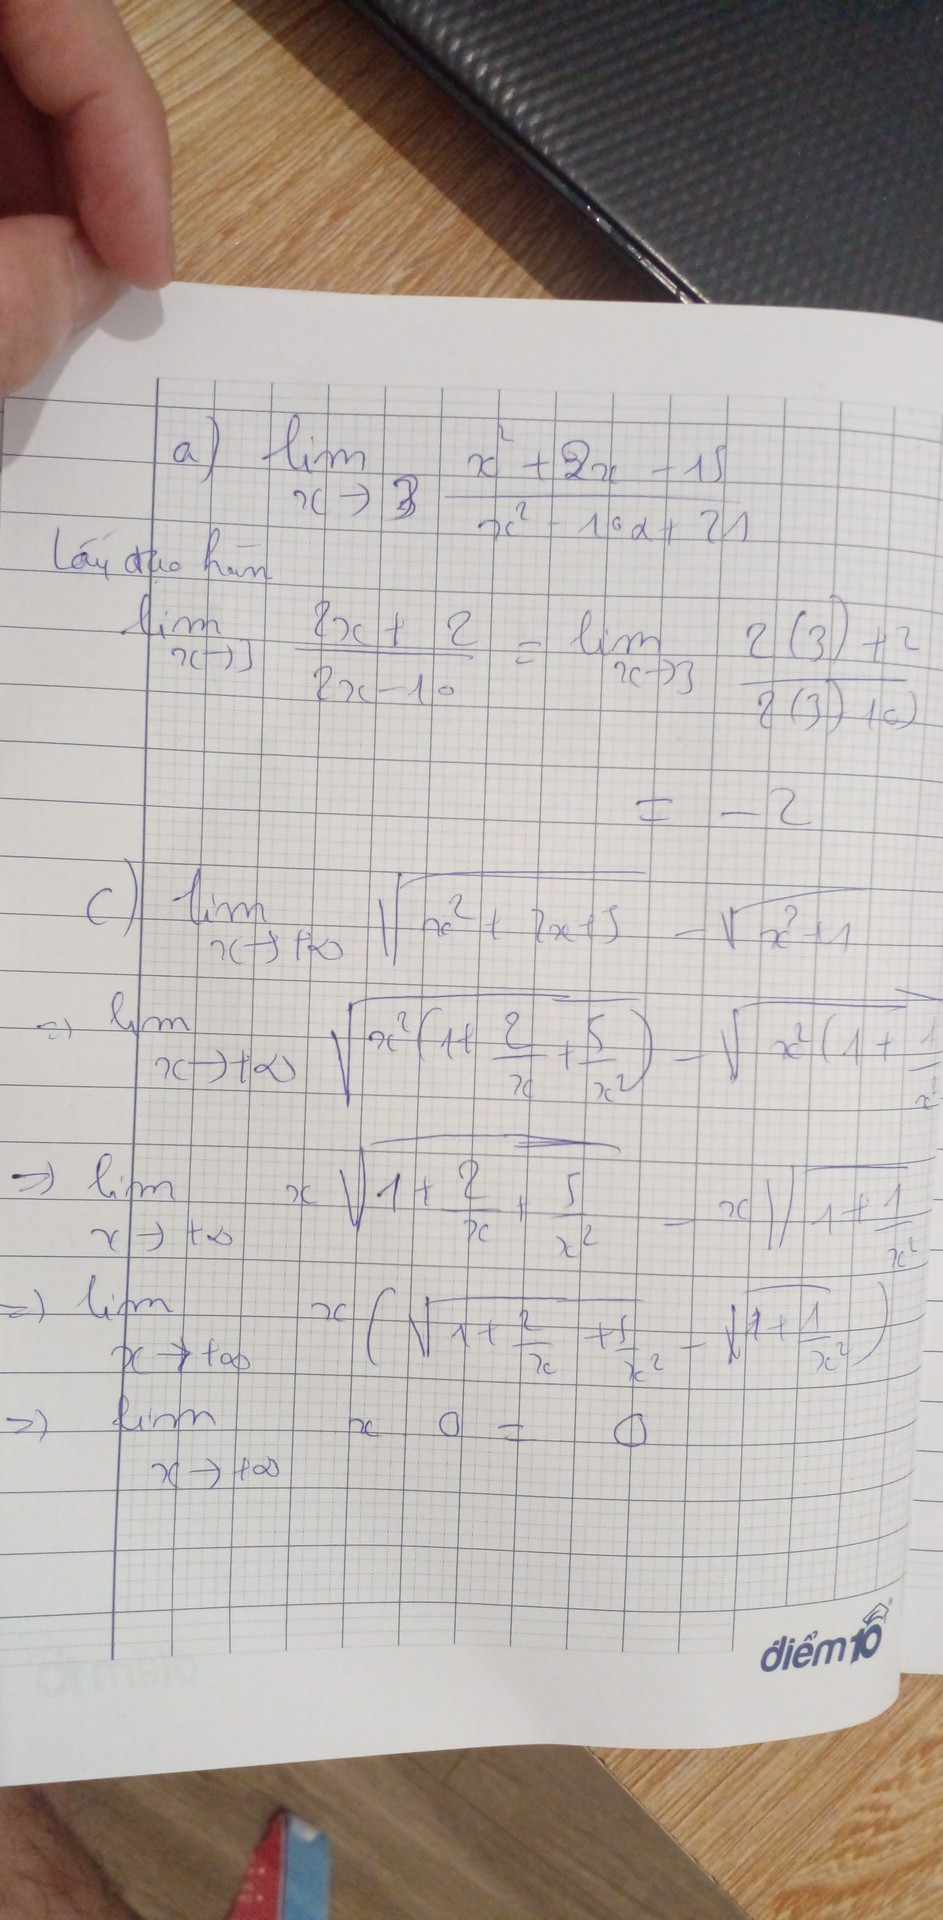 a) lim x→3 (x² + 2x - 15)/(x² - 10x + 21)
Lấy đạo hàm
lim x→3 (2x + 2)/(2x - 10) = lim x→3 (2(3) + 2)/(2(3) + 10)
= -2
c) lim x→+∞ √(x² + 2x + 5) - √(x² + 1)
=> lim x→+∞ √(x²(1 + 2/x + 5/x²)) - √(x²(1 + 1/x²
=> lim x→+∞ x√(1 + 2/x + 5/x²) - x√(1 + 1/x²)
=> lim x→+∞ x(√(1 + 2/x + 5/x²) - √(1 + 1/x²))
=> lim x→+∞ x 0 = 0
điểm10